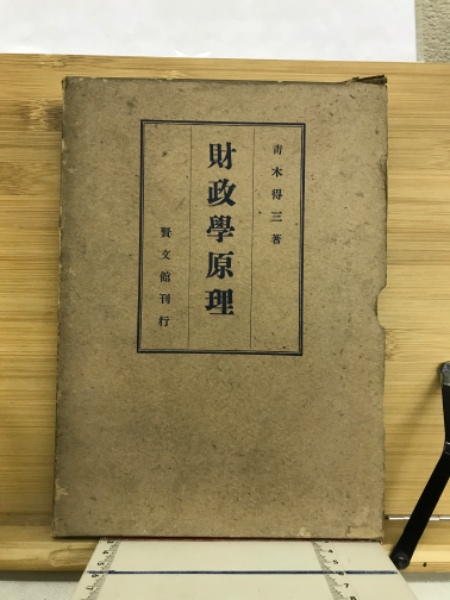 青木得三著
財政學原理
賢文館刊行